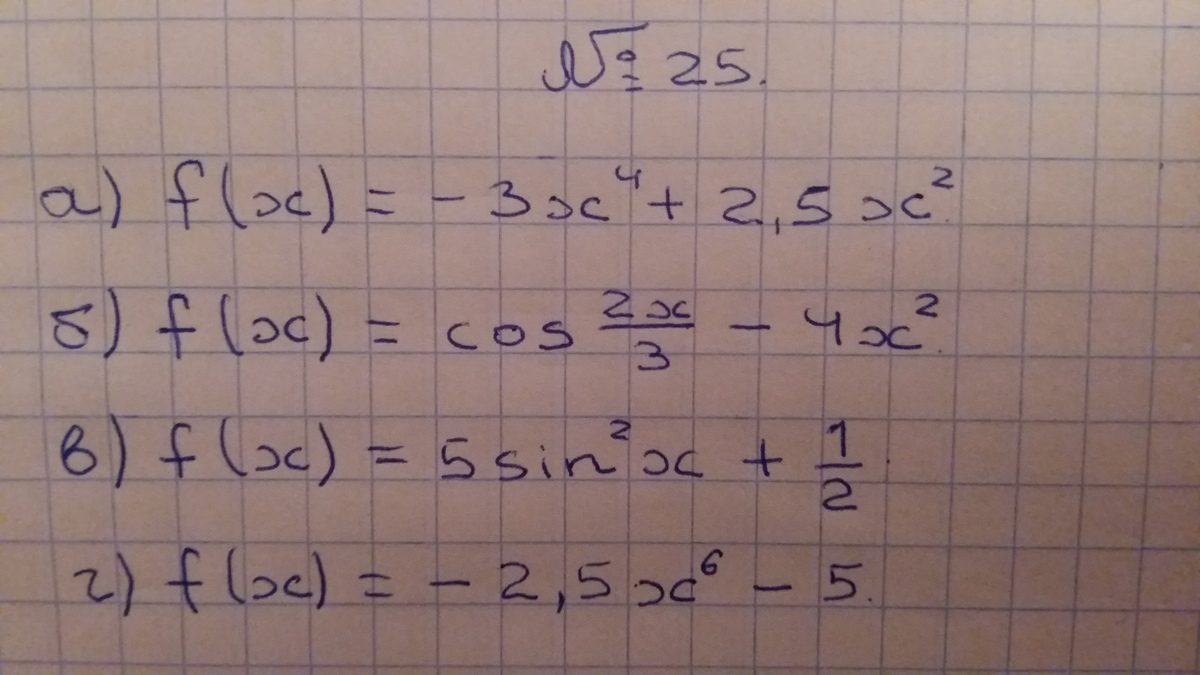 № 25.
а) f(x) = - 3x⁴ + 2,5x².
б) f(x) = cos 2x/3 - 4x².
в) f(x) = 5sin²x + 1/2.
г) f(x) = - 2,5x⁶ - 5.